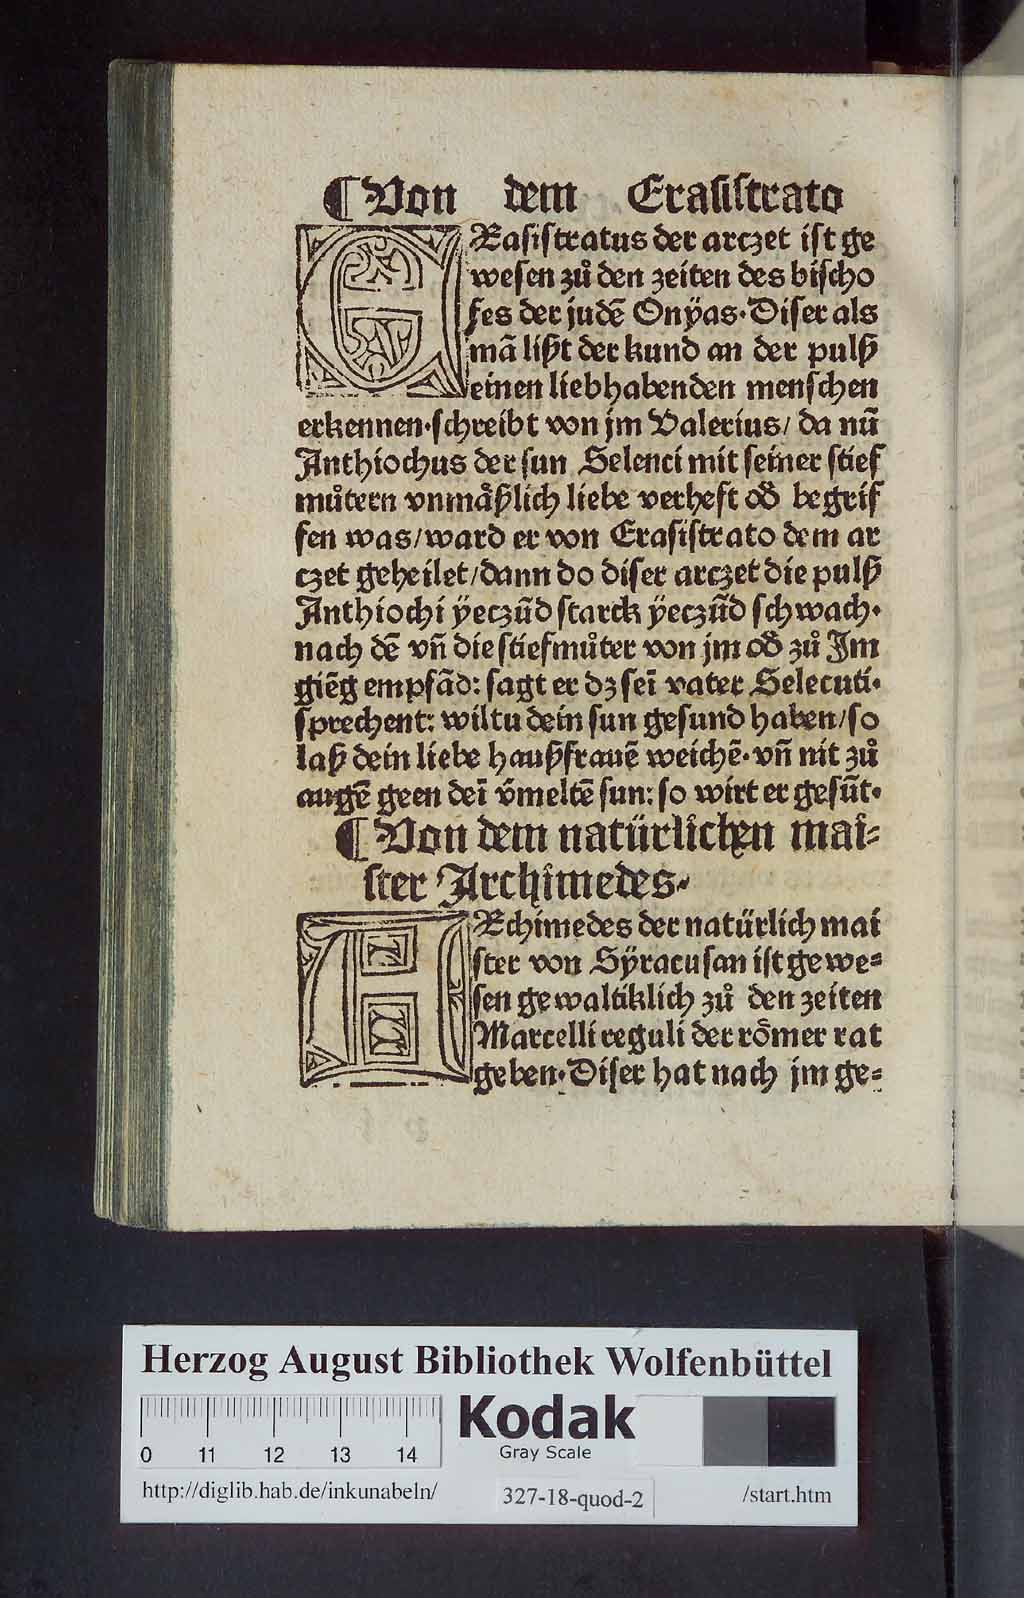 ¶Von dem Erasistrato
ERasistratus der arczet ist ge
wesen zů den zeiten des bischo
fes der judē Onÿas·Diser als
mā lißt der kund an der pulß
einen liebhabenden menschen
erkennen·schreibt von jm Valerius/ da nū
Anthiochus der sun Selenci mit seiner stief
můtern vnmåßlich liebe verheft oď begrif
fen was/ward er von Erasistrato dem ar
czet geheilet/dann do diser arczet die pulß
Anthiochi ÿeczūd starck ÿeczūd schwach·
nach dē vn̄ die stiefmůter von jm oď zů Jm
giēg empfād: sagt er dz seī vater Selecuti·
sprechent: wiltu dein sun gesund haben/so
laß dein liebe haußfrauē weichē·vn̄ nit zů
augē geen deī v̄meltē sun: so wirt er gesūt·
¶Von dem natürlichen mai=
ster Archimedes·
ARchimedes der natürlich mai
ster von Sÿracusan ist gewe=
sen gewaltiklich zů den zeiten
Marcelli reguli der römer rat
geben·Diser hat nach jm ge=
Herzog August Bibliothek Wolfenbüttel
0 11 12 13 14
Kodak
Gray Scale
http://diglib.hab.de/inkunabeln/ 327-18-quod-2 /start.htm